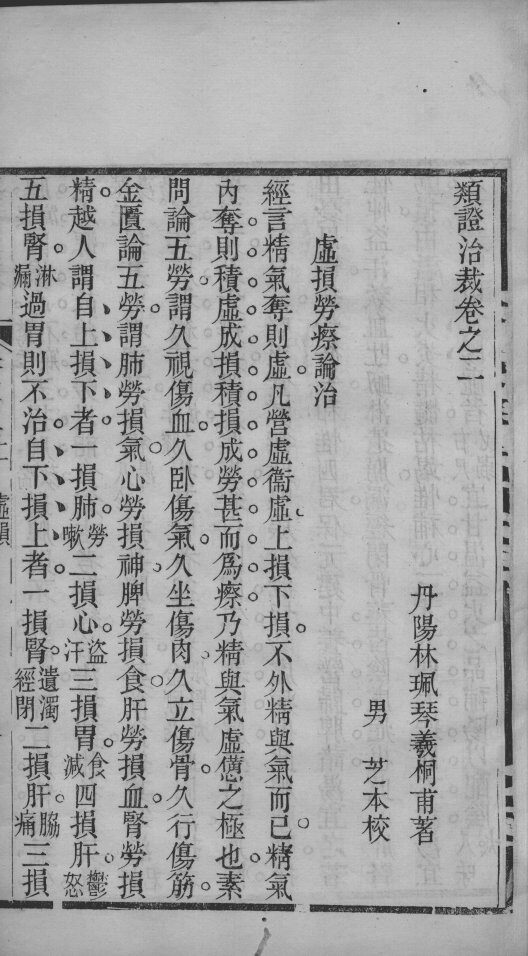 類證治裁卷之二
丹陽林珮琴羲桐甫著
男　芝本校
虛損勞瘵論治
經言精氣奪則虛凡營虛衞虛上損下損不外精與氣而已精氣
內奪則積虛成損積損成勞甚而爲瘵乃精與氣虛憊之極也素
問論五勞謂久視傷血久臥傷氣久坐傷肉久立傷骨久行傷筋
金匱論五勞謂肺勞損氣心勞損神脾勞損食肝勞損血腎勞損
精越人謂自上損下者一損肺勞嗽二損心盜汗三損胃食減四損肝鬱怒
五損腎淋漏過胃則不治自下損上者一損腎遺濁經閉二損肝脇痛三損
虛損